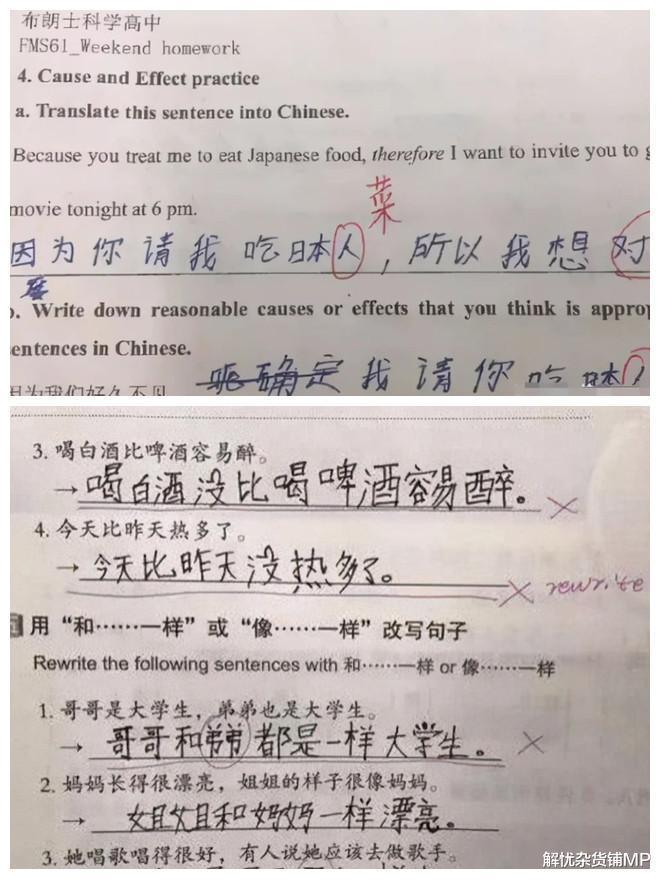 布朗士科学高中
FMS61_Weekend homework
4. Cause and Effect practice
a. Translate this sentence into Chinese.
Because you treat me to eat Japanese food, therefore I want to invite you to g
movie tonight at 6 pm.
菜
因为你请我吃日本人，所以我想对
. Write down reasonable causes or effects that you think is approp
entences in Chinese.
因为我们好久不见 确定我请你吃
3. 喝白酒比啤酒容易醉。
→ 喝白酒没比喝啤酒容易醉。
4. 今天比昨天热多了。
→ 今天比昨天没热多了。
rewrite
用“和……一样”或“像……一样”改写句子
Rewrite the following sentences with 和……一样 or 像……一样
1. 哥哥是大学生，弟弟也是大学生。
→ 哥哥和弟弟都是一样大学生。
2. 妈妈长得很漂亮，姐姐的样子很像妈妈。
→ 姐姐和妈妈一样漂亮。
3. 她唱歌唱得很好，有人说她应该去做歌手。
解忧杂货铺MP